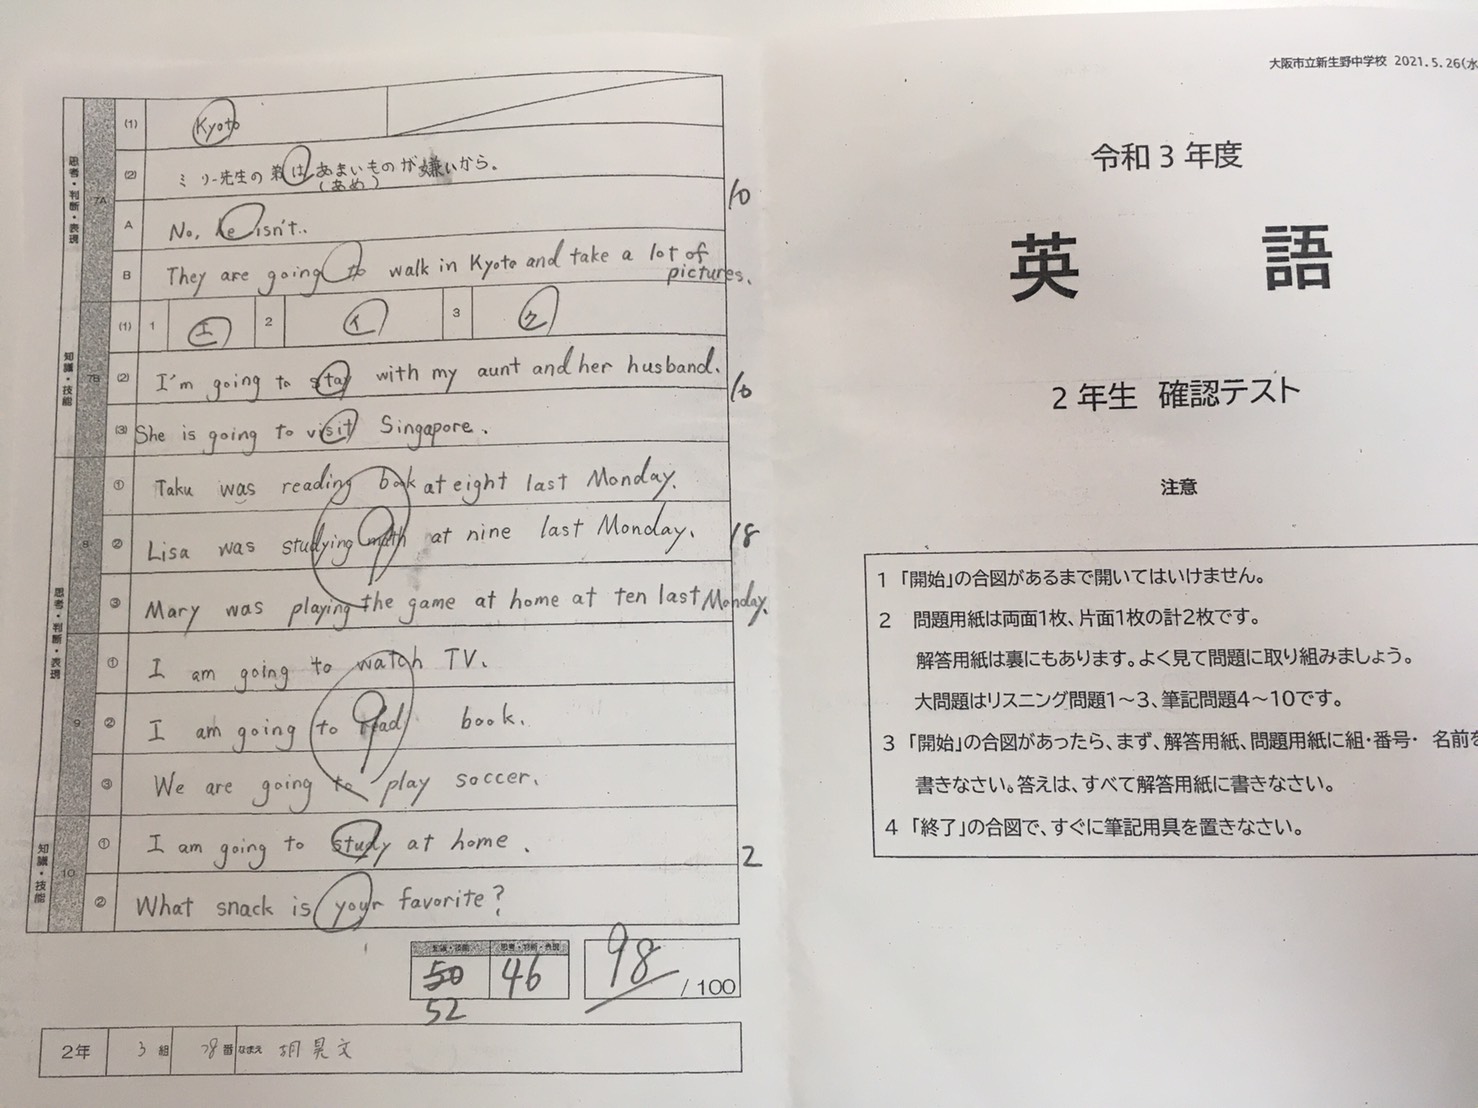 思考・判断・表現
7A
(1) Kyoto
(2) ミリー先生の弟はあまいものが嫌いから。
(あめ)
10
A No, he isn't.
B They are going to walk in Kyoto and take a lot of
pictures.
知識・技能
7B
(1) 1 エ 2 イ 3 ウ
(2) I'm going to stay with my aunt and her husband.
10
(3) She is going to visit Singapore.
思考・判断・表現
8
① Taku was reading book at eight last Monday.
② Lisa was studying math at nine last Monday.
18
③ Mary was playing the game at home at ten last Monday.
9
① I am going to watch TV.
② I am going to read book.
③ We are going to play soccer.
知識・技能
10
① I am going to study at home.
2
② What snack is your favorite?
知識・技能 思考・判断・表現
50 46 98 /100
52
2年 3組 番 なまえ 胡晃文
大阪市立新生野中学校 2021.5.26(水
令和3年度
英 語
2年生 確認テスト
注意
1 「開始」の合図があるまで開いてはいけません。
2 問題用紙は両面1枚、片面1枚の計2枚です。
解答用紙は裏にもあります。よく見て問題に取り組みましょう。
大問題はリスニング問題1~3、筆記問題4~10です。
3 「開始」の合図があったら、まず、解答用紙、問題用紙に組・番号・ 名前を
書きなさい。答えは、すべて解答用紙に書きなさい。
4 「終了」の合図で、すぐに筆記用具を置きなさい。